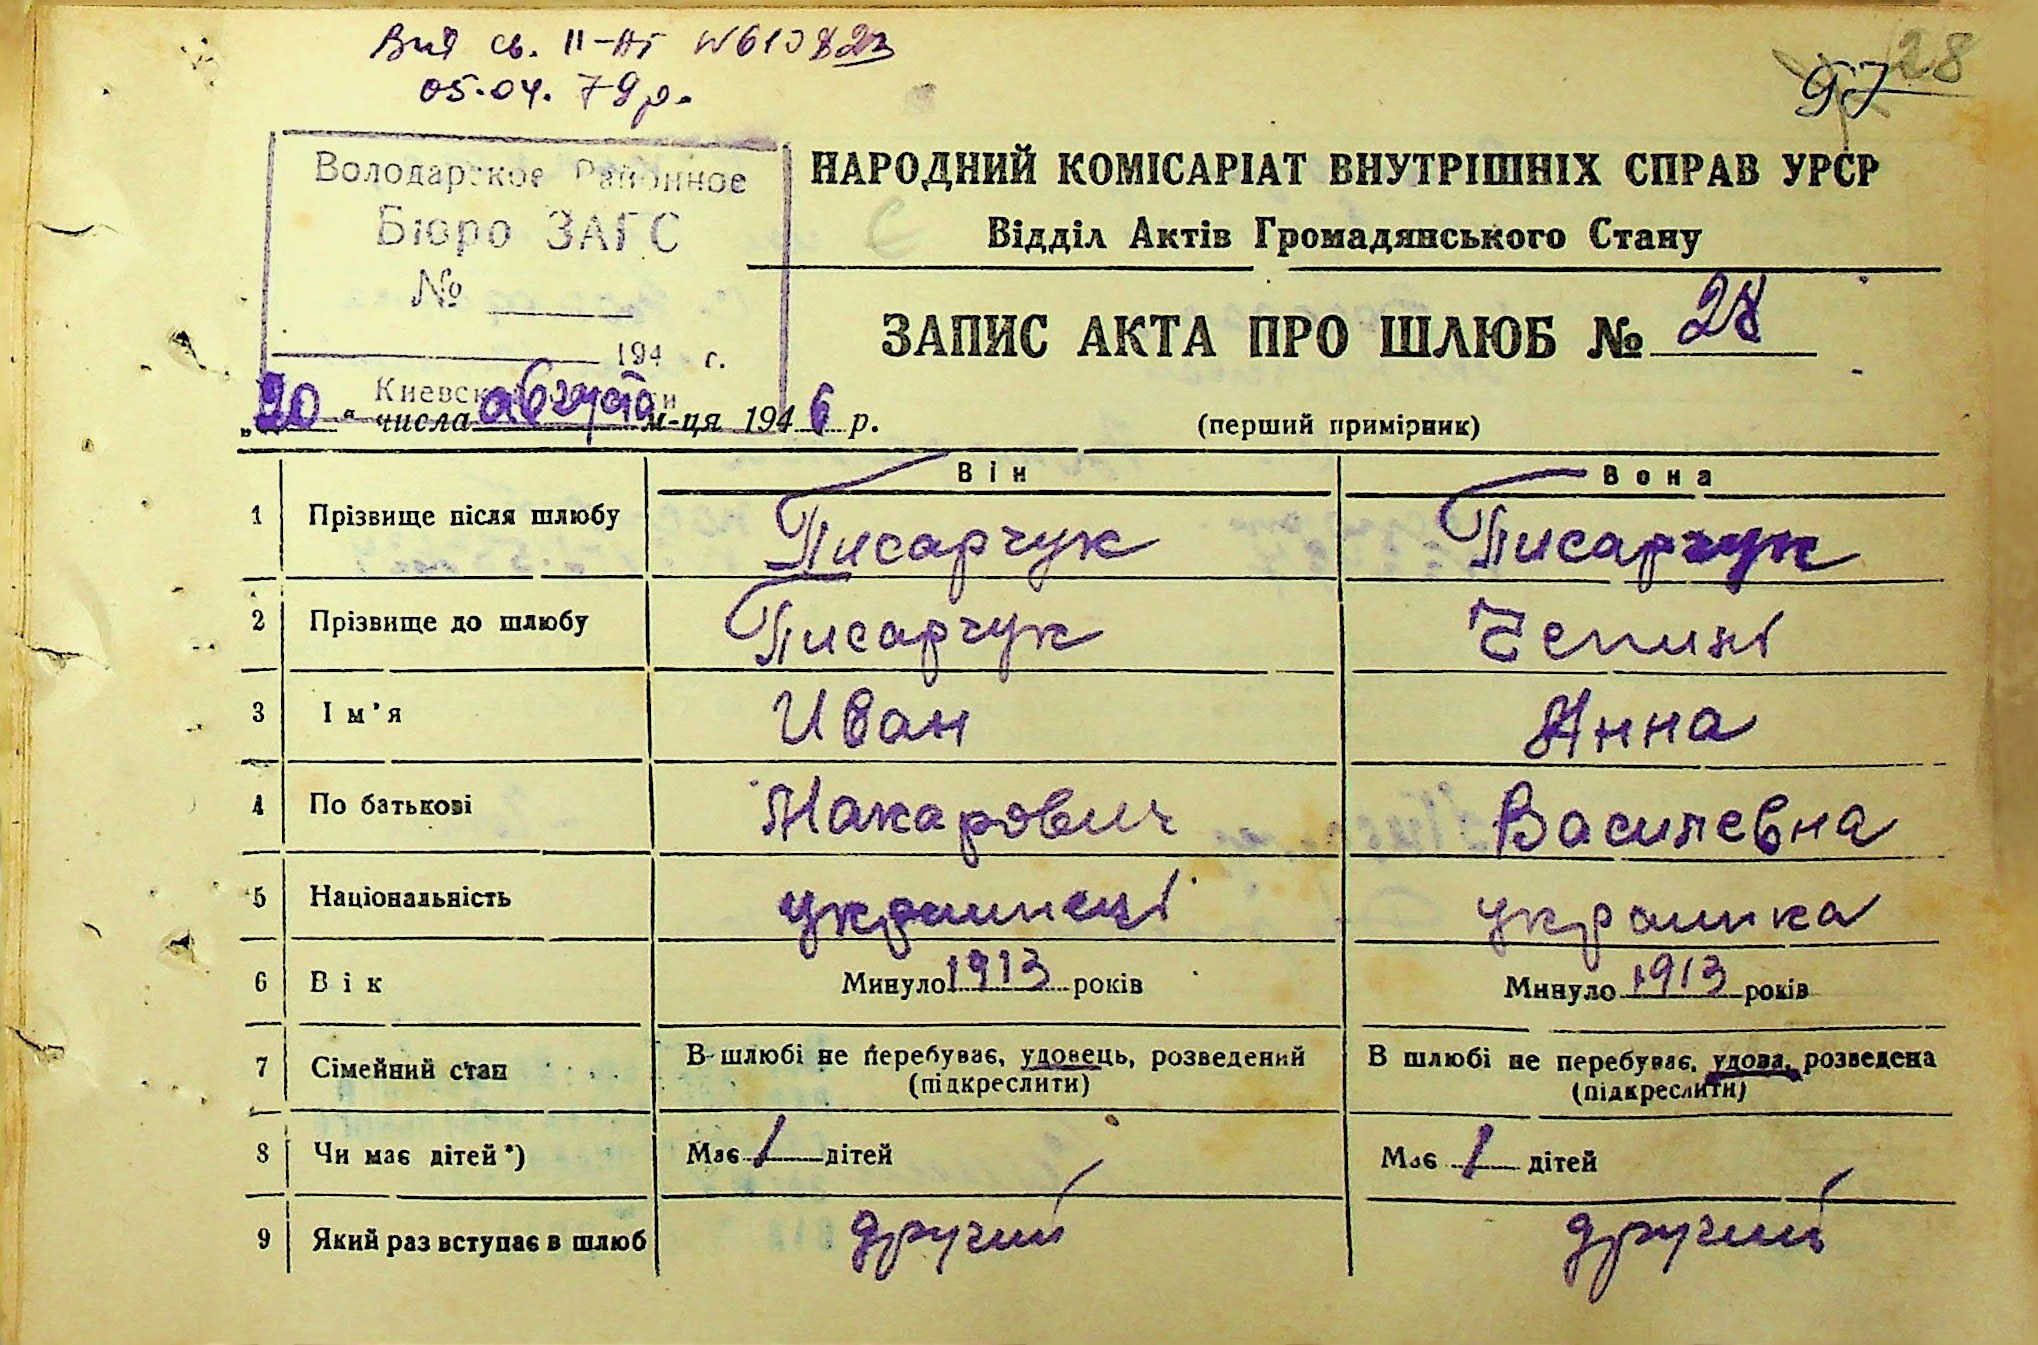 Вид св. II-АГ №610823
05.04.79р.
28
97
Володарское Районное
Бюро ЗАГС
№
194 г.
НАРОДНИЙ КОМІСАРІАТ ВНУТРІШНІХ СПРАВ УРСР
Відділ Актів Громадянського Стану
ЗАПИС АКТА ПРО ШЛЮБ № 28
„20“ числа августа м-ця 1946 р.
(перший примірник)
Він Вона
1 Прізвище після шлюбу Писарчук Писарчук
2 Прізвище до шлюбу Писарчук
3 Ім'я Иван Анна
4 По батькові Макарович Василевна
5 Національність украинец украинка
6 Вік Минуло 1913 років Минуло 1913 років
7 Сімейний стан В шлюбі не перебуває, удовець, розведений В шлюбі не перебуває, удова, розведена
(підкреслити) (підкреслити)
8 Чи має дітей*) Має 1 дітей Має 1 дітей
9 Який раз вступає в шлюб другий другий